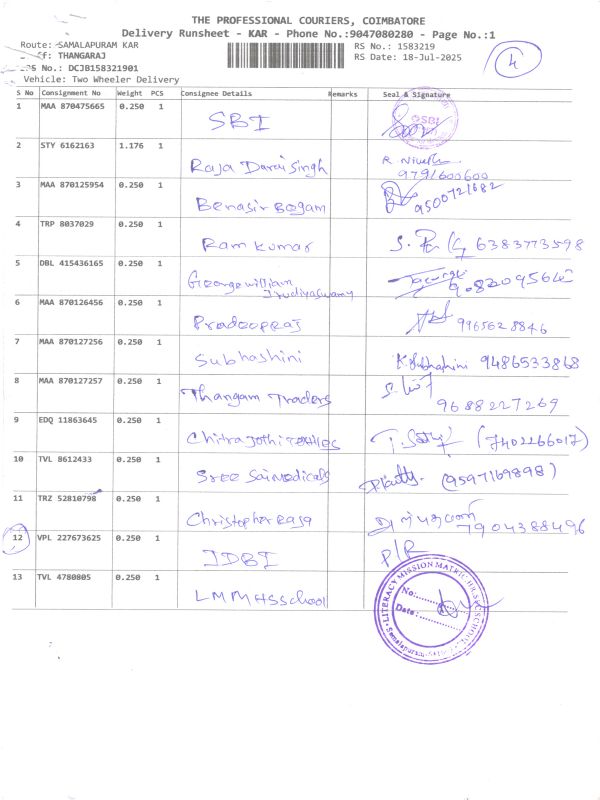 THE PROFESSIONAL COURIERS, COIMBATORE
Delivery Runsheet - KAR - Phone No.:9047080280 - Page No.:1
Route: SAMALAPURAM KAR
RS No.: 1583219
THANGARAJ
RS Date: 18-Jul-2025
4
No.: DCJB158321901
Vehicle: Two Wheeler Delivery
S No Consignment No Weight PCS Consignee Details Remarks Seal & Signature
1 MAA 870475665 0.250 1 SBI SBI
2 STY 6162163 1.176 1 Raja Darai Singh R Nivetha 9791600600
3 MAA 870125954 0.250 1 Benasir Begam 9500721682
4 TRP 8037029 0.250 1 Ram kumar 6383773598
5 DBL 415436165 0.250 1 George william
Irudiyaswamy
6 MAA 870126456 0.250 1 Pradeepraj 9965628846
7 MAA 870127256 0.250 1 Subhashini K.Subhashini 9486533868
8 MAA 870127257 0.250 1 Thangam Traders 9688227269
9 EDQ 11863645 0.250 1 Chitra Jothi Textiles (7402266017)
10 TVL 8612433 0.250 1 Sree Sai Medicals (9597169898)
11 TRZ 52810798 0.250 1 Christopher raja 7904388496
12 VPL 227673625 0.250 1 IDBI P/R
13 TVL 4780805 0.250 1 LMMHSSchool
LITERACY MISSION MATRIC
No:
Date: